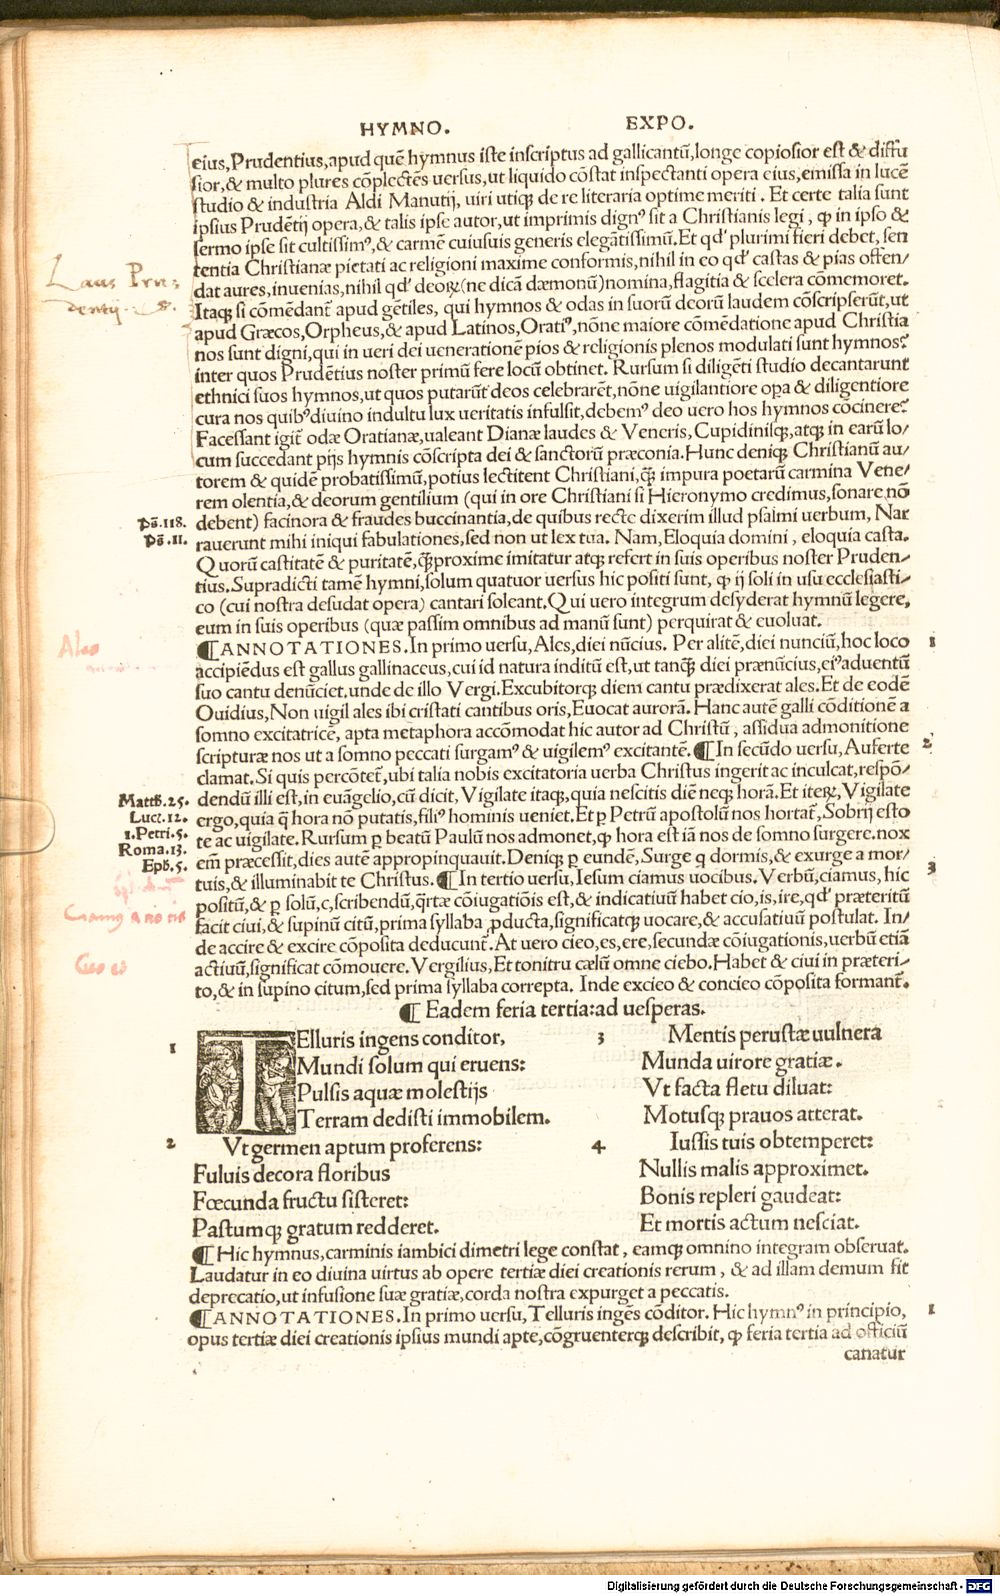 HYMNO. EXPO.
eius,Prudentius,apud quē hymnus iste inscriptus ad gallicantū,longe copiosior est & diffu
sior,& multo plures cōplectēs uersus,ut liquido cōstat inspectanti opera eius,emissa in lucē
studio & industria Aldi Manutij, uiri utiqꝫ de re literaria optime meriti . Et certe talia sunt
ipsius Prudētij opera,& talis ipse autor,ut imprimis dignꝰ sit a Christianis legi , ꝙ in ipso &
sermo ipse sit cultissimꝰ,& carmē cuiusuis generis elegātissimū.Et qd' plurimi fieri debet, sen
tentia Christianæ pietati ac religioni maxime conformis,nihil in eo qd' castas & pias offen/
Laus Pru-
dentij.
dat aures,inuenias,nihil qd' deoꝝ(ne dicā dæmonū)nomina,flagitia & scelera cōmemoret.
Itaqꝫ si cōmēdant̄ apud gētiles, qui hymnos & odas in suorū deorū laudem cōscripserūt,ut
apud Græcos,Orpheus,& apud Latinos,Oratiꝰ,nōne maiore cōmēdatione apud Christia
nos sunt digni,qui in ueri dei uenerationē pios & religionis plenos modulati sunt hymnos?
inter quos Prudētius noster primū fere locū obtinet. Rursum si diligēti studio decantarunt
ethnici suos hymnos,ut quos putarūt deos celebrarēt,nōne uigilantiore oꝑa & diligentiore
cura nos quibꝰdiuino indultu lux ueritatis infulsit,debemꝰ deo uero hos hymnos cōcinere?
Facessant igit̄ odæ Oratianæ,ualeant Dianæ laudes & Veneris, Cupidinisqꝫ,atqꝫ in earū lo/
cum succedant pijs hymnis cōscripta dei & sanctorū præconia.Hunc deniqꝫ Christianū au/
torem & quidē probatissimū,potius lectitent Christiani,q̄ꝫ impura poetarū carmina Vene/
rem olentia,& deorum gentilium (qui in ore Christiani si Hieronymo credimus,sonare nō
Ps̄.118. debent) facinora & fraudes buccinantia,de quibus recte dixerim illud psalmi uerbum, Nar
Ps̄.11. rauerunt mihi iniqui fabulationes,sed non ut lex tua. Nam,Eloquia domini , eloquia casta.
Quorū castitatē & puritatē,q̄ꝫproxime imitatur atqꝫ refert in suis operibus noster Pruden/
tius.Supradicti tamē hymni,solum quatuor uersus hic positi sunt, ꝙ ij soli in usu ecclesiasti/
co (cui nostra desudat opera) cantari soleant.Qui uero integrum desyderat hymnū legere,
eum in suis operibus (quæ passim omnibus ad manū sunt) perquirat & euoluat.
Ales
¶ANNOTATIONES.In primo uersu,Ales,diei nūcius. Per alitē,diei nunciū,hoc loco 1
accipiēdus est gallus gallinaceus,cui id natura inditū est,ut tanq̄ꝫ diei prænūcius,eiꝰaduentū
suo cantu denūciet,unde de illo Vergi.Excubitorqꝫ diem cantu prædixerat ales.Et de eodē
Ouidius,Non uigil ales ibi cristati cantibus oris,Euocat aurorā. Hanc autē galli cōditionē a
somno excitatricē, apta metaphora accōmodat hic autor ad Christū , assidua admonitione
scripturæ nos ut a somno peccati surgamꝰ & uigilemꝰ excitantē. ¶In secūdo uersu,Auferte 2
clamat.Si quis percōtet̄,ubi talia nobis excitatoria uerba Christus ingerit ac inculcat,respō/
Matth.25. dendū illi est,in euāgelio,cū dicit, Vigilate itaqꝫ,quia nescitis diē neqꝫ horā.Et iteꝝ,Vigilate
Luc.12. ergo,quia q̄ hora nō putatis,filiꝰ hominis ueniet.Et ꝑ Petrū apostolū nos hortat̄, Sobrij esto
1.Petri.5. te ac uigilate. Rursum ꝑ beatū Paulū nos admonet,ꝙ hora est iā nos de somno surgere.nox
Roma.13.
Eph.5. em̄ præcessit,dies autē appropinquauit.Deniqꝫ ꝑ eundē, Surge q dormis,& exurge a mor/
tuis,& illuminabit te Christus. ¶In tertio uersu,Iesum ciamus uocibus. Verbū,ciamus, hic 3
positū,& ꝑ solū,c,scribendū,q̄rtæ cōiugatiōis est,& indicatiuū habet cio,is,ire,qd' præteritū
facit ciui,& supinū citū,prima syllaba ꝓducta,significatqꝫ uocare,& accusatiuū postulat. In/
de accire & excire cōposita deducunt̄. At uero cieo,es,ere,secundæ cōiugationis,uerbū etiā
Cieo es
actiuū,significat cōmouere. Vergilius,Et tonitru cælū omne ciebo.Habet & ciui in præteri/
to,& in supino citum,sed prima syllaba correpta. Inde excieo & concieo cōposita formant̄.
¶ Eadem feria tertia:ad uesperas.
1 TElluris ingens conditor,
Mundi solum qui eruens:
Pulsis aquæ molestijs
Terram dedisti immobilem.
2 Vt germen aptum proferens:
Fuluis decora floribus
Fœcunda fructu sisteret:
Pastumqꝫ gratum redderet.
3 Mentis perustæ uulnera
Munda uirore gratiæ.
Vt facta fletu diluat:
Motusqꝫ prauos atterat.
4 Iussis tuis obtemperet:
Nullis malis approximet.
Bonis repleri gaudeat:
Et mortis actum nesciat.
¶ Hic hymnus,carminis iambici dimetri lege constat , eamqꝫ omnino integram obseruat.
Laudatur in eo diuina uirtus ab opere tertiæ diei creationis rerum , & ad illam demum fit
deprecatio,ut infusione suæ gratiæ,corda nostra expurget a peccatis.
¶ANNOTATIONES.In primo uersu, Telluris ingēs cōditor. Hic hymnꝰ in principio, 1
opus tertiæ diei creationis ipsius mundi apte,cōgruenterqꝫ describit, ꝙ feria tertia ad officiū
canatur
Digitalisierung gefördert durch die Deutsche Forschungsgemeinschaft - DFG